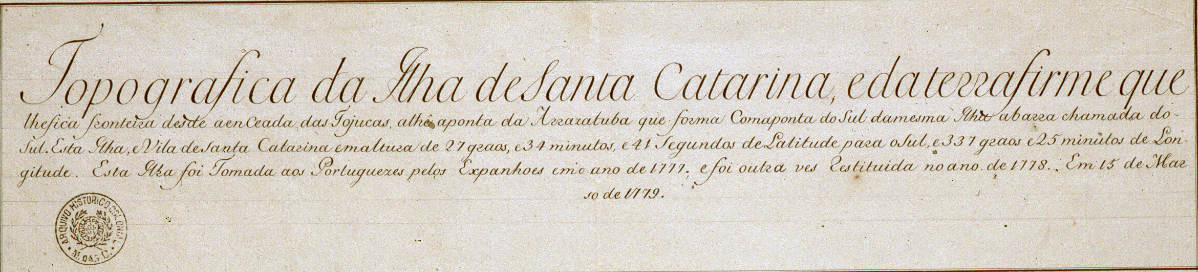 Topografica da Ilha de Santa Catarina, e da terra firme que
lhe fica fronteira desde a enceada das Tojucas, athé aponta da Arraratuba que forma Com aponta do Sul da mesma Ilha abarra chamada do-
Sul. Esta Ilha, e Vila de Santa Catarina em altura de 27 graos, e 34 minutos, e 41 Segundos de Latitude para o Sul, e 337 graos e 25 minutos de Lon-
gitude. Esta Ilha foi Tomada aos Portuguezes pelos Expanhoes em o ano de 1777. e foi outra ves Restituida no ano de 1778. Em 15 de Mar
so de 1779.
ARQUIVO HISTORICO COLONIAL
M. DAS C.